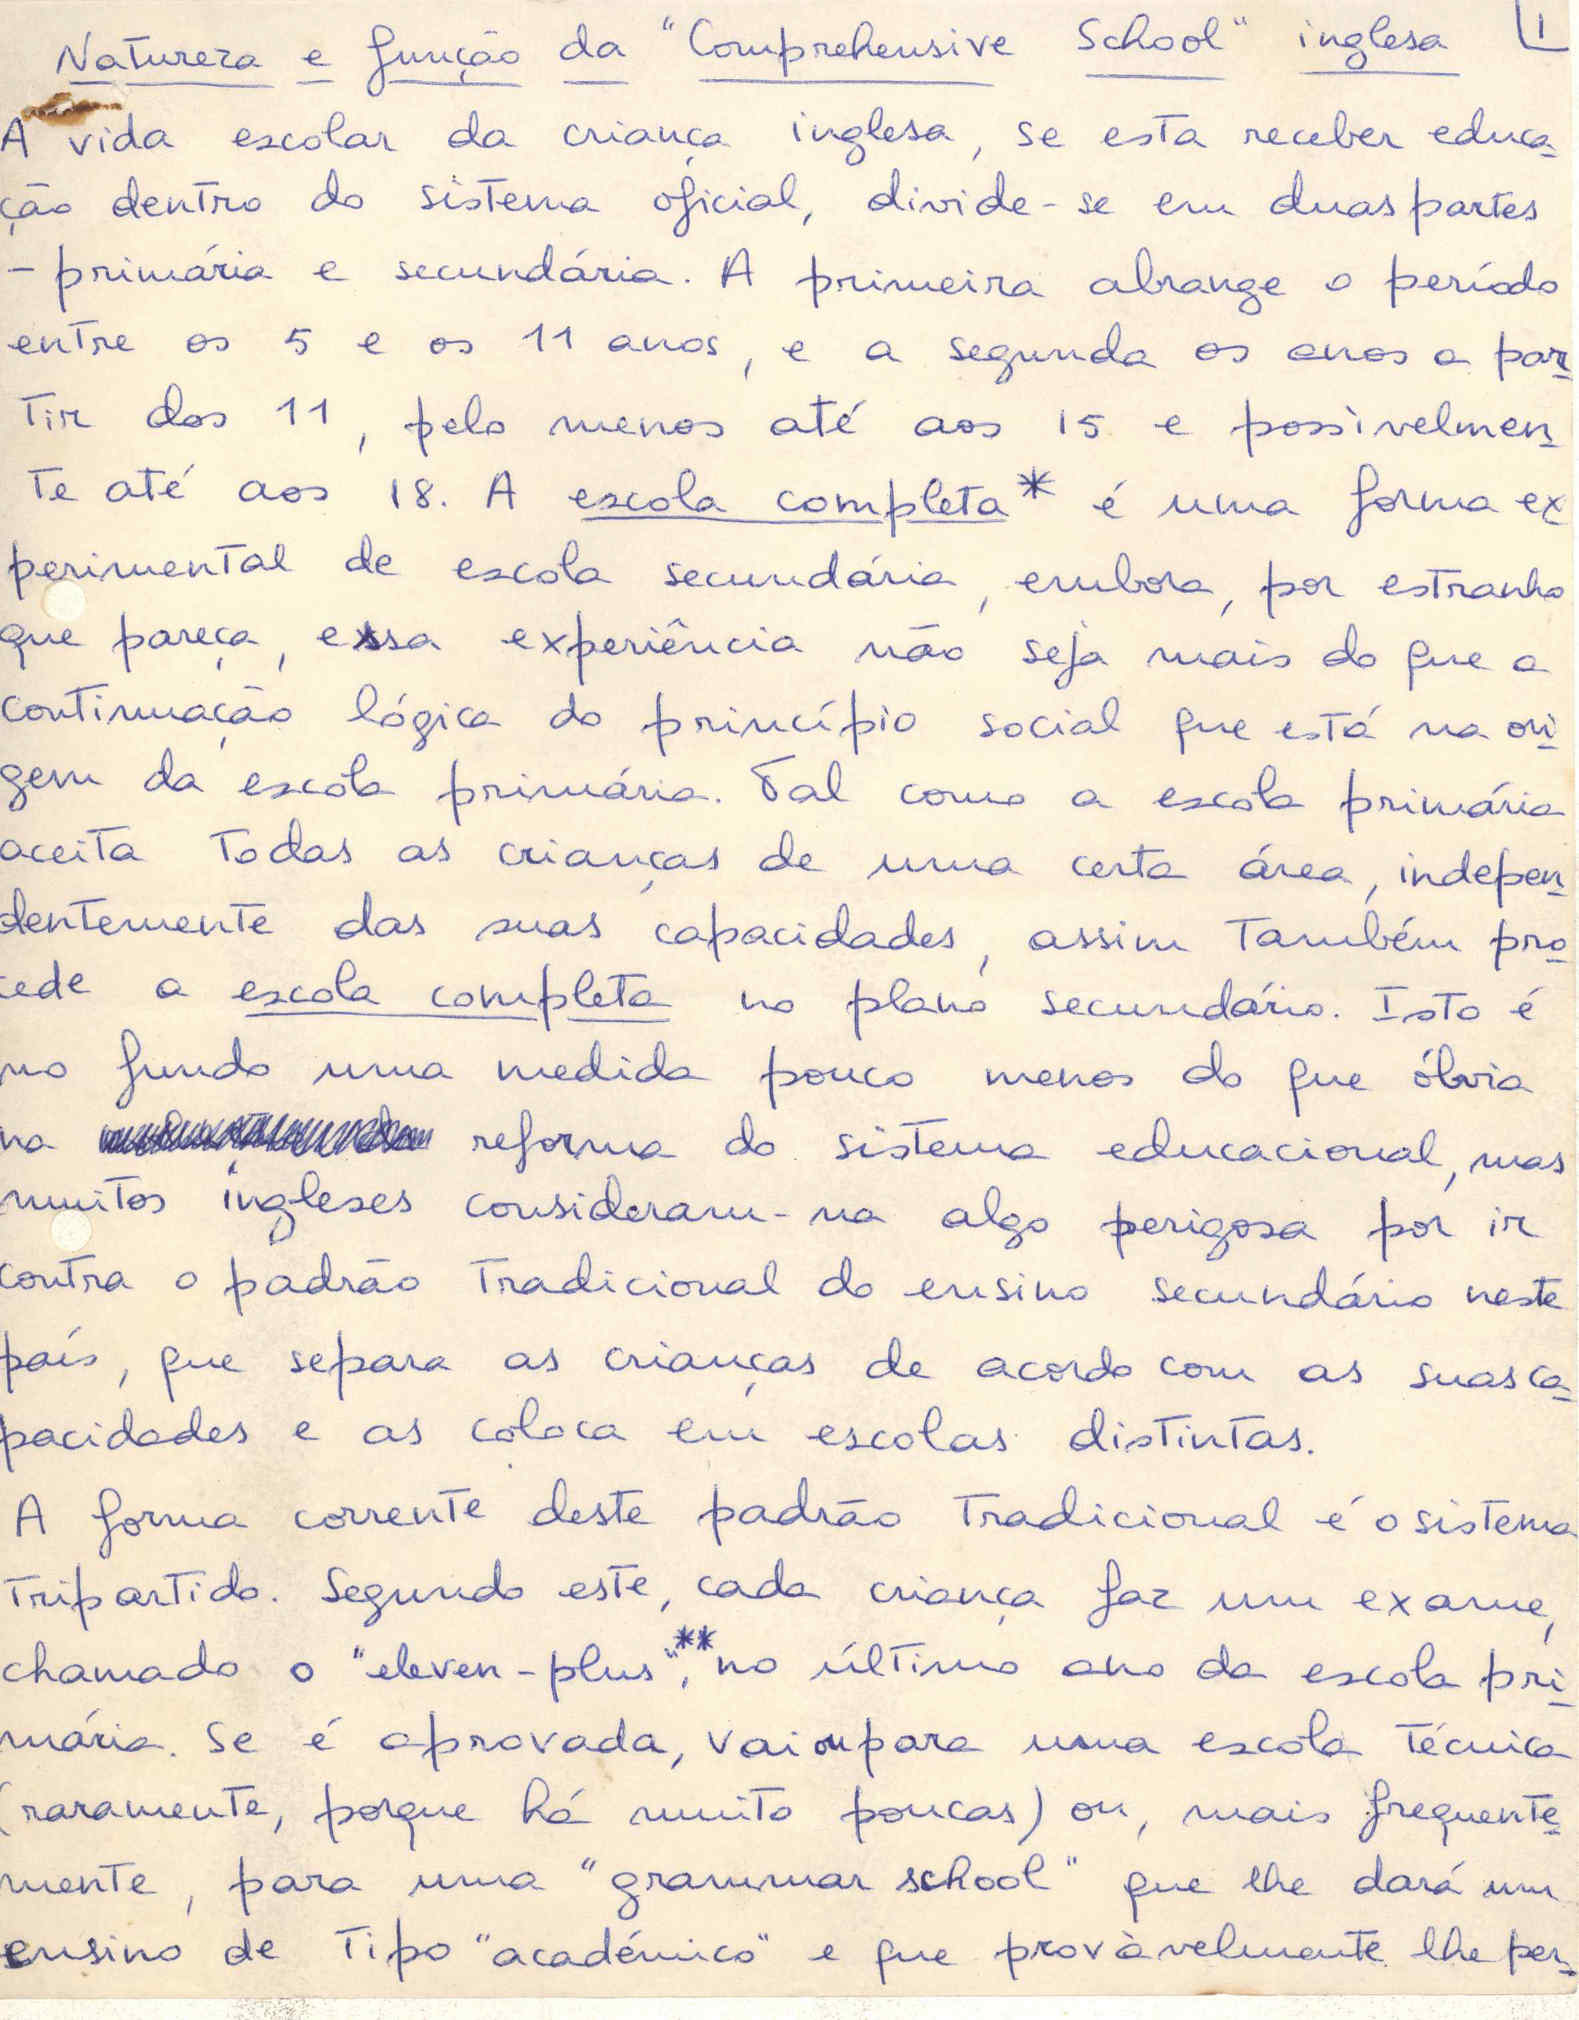 Natureza e função da "Comprehensive School" inglesa 1
A vida escolar da criança inglesa, se esta receber educa-
ção dentro do sistema oficial, divide-se em duas partes
- primária e secundária. A primeira abrange o período
entre os 5 e os 11 anos, e a segunda os anos a par-
tir dos 11, pelo menos até aos 15 e possìvelmen-
te até aos 18. A escola completa* é uma forma ex-
perimental de escola secundária, embora, por estranho
que pareça, essa experiência não seja mais do que a
continuação lógica do princípio social que está na ori-
gem da escola primária. Tal como a escola primária
aceita todas as crianças de uma certa área, indepen-
dentemente das suas capacidades, assim também pro-
cede a escola completa no plano secundário. Isto é
no fundo uma medida pouco menos do que óbvia
na reforma do sistema educacional, mas
muitos ingleses consideram-na algo perigosa por ir
contra o padrão tradicional do ensino secundário neste
país, que separa as crianças de acordo com as suas ca-
pacidades e as coloca em escolas distintas.
A forma corrente deste padrão tradicional é o sistema
tripartido. Segundo este, cada criança faz um exame,
chamado o "eleven-plus",** no último ano da escola pri-
mária. Se é aprovada, vai ou para uma escola técnica
(raramente, porque há muito poucas) ou, mais frequente-
mente, para uma "grammar school" que lhe dará um
ensino de tipo "académico" e que provàvelmente lhe per-